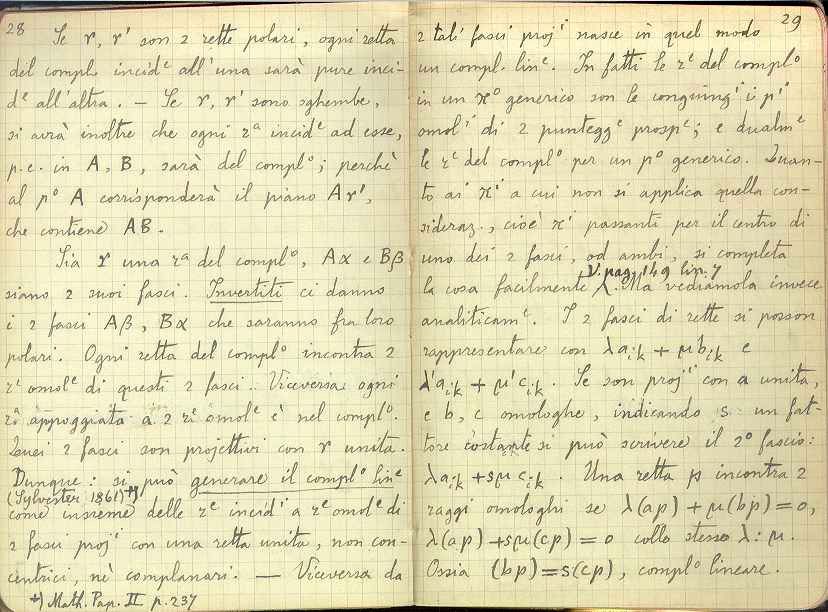 28
Se r, r' son 2 rette polari, ogni retta
del compl. incidᵉ all'una sarà pure inci-
dᵉ all'altra. — Se r, r' sono sghembe,
si avrà inoltre che ogni rᵃ incidᵉ ad esse,
p.e. in A, B, sarà del complᵒ; perchè
al pᵒ A corrisponderà il piano Ar',
che contiene AB.
Sia r una rᵃ del complᵒ, Aα e Bβ
siano 2 suoi fasci. Invertiti ci danno
i 2 fasci Aβ, Bα che saranno fra loro
polari. Ogni retta del complᵒ incontra 2
rᵉ omolᵉ di questi 2 fasci. Viceversa ogni
rᵃ appoggiata a 2 rᵉ omolᵉ è nel complᵒ.
Quei 2 fasci son projettivi con r unita.
Dunque: si può generare il complᵒ linᵉ
(Sylvester 1861) +)
come insieme delle rᵉ incidⁱ a rᵉ omolᵉ di
2 fasci projⁱ con una retta unita, non con-
centrici, nè complanari. — Viceversa da
+) Math. Pap. II p. 237
29
2 tali fasci projⁱ nasce in quel modo
un compl. linᵉ. In fatti le rᵉ del complᵒ
in un πᵒ generico son le congiungⁱ i pⁱ
omolⁱ di 2 punteggᵉ prospᵉ; e dualmᵉ
le rᵉ del complᵒ per un pᵒ generico. Quan-
to ai πⁱ a cui non si applica quella con-
sideraz., cioè πⁱ passanti per il centro di
uno dei 2 fasci, od ambi, si completa
V. pag. 149 lin. 7
la cosa facilmente. Ma vediamola invece
analiticamᵉ. I 2 fasci di rette si posson
rappresentare con λaᵢₖ + μbᵢₖ e
λ'aᵢₖ + μ'cᵢₖ. Se son projⁱ con a unita,
e b, c omologhe, indicando s un fat-
tore costante si può scrivere il 2º fascio:
λaᵢₖ + sμcᵢₖ. Una retta p incontra 2
raggi omologhi se λ(ap) + μ(bp) = 0,
λ(ap) + sμ(cp) = 0 collo stesso λ:μ.
Ossia (bp) = s(cp), complᵒ lineare.